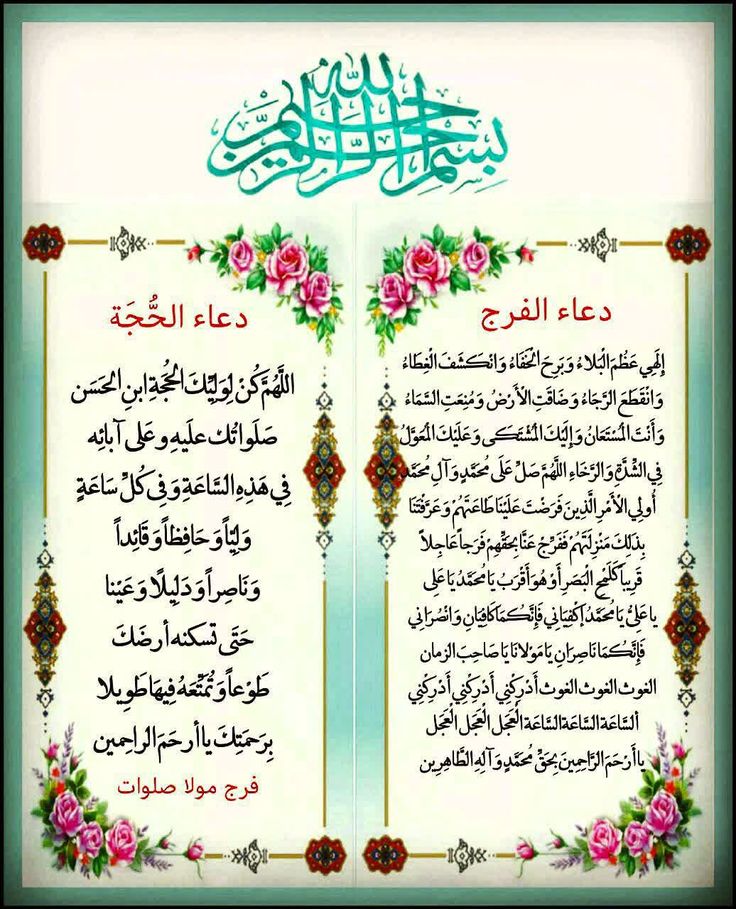 بِسْمِ اللهِ الرَّحْمنِ الرَّحِيمِ
دعاء الفرج
إِلَهِي عَظُمَ الْبَلاءُ وَبَرِحَ الْخَفَاءُ وَانْكَشَفَ الْغِطَاءُ
وَانْقَطَعَ الرَّجَاءُ وَضَاقَتِ الْأَرْضُ وَمُنِعَتِ السَّمَاءُ
وَأَنْتَ الْمُسْتَعَانُ وَإِلَيْكَ الْمُشْتَكَى وَعَلَيْكَ الْمُعَوَّلُ
فِي الشِّدَّةِ وَالرَّخَاءِ اللَّهُمَّ صَلِّ عَلَى مُحَمَّدٍ وَآلِ مُحَمَّدٍ
أُولِي الْأَمْرِ الَّذِينَ فَرَضْتَ عَلَيْنَا طَاعَتَهُمْ وَعَرَّفْتَنَا
بِذَلِكَ مَنْزِلَتَهُمْ فَفَرِّجْ عَنَّا بِحَقِّهِمْ فَرَجاً عَاجِلاً
قَرِيباً كَلَمْحِ الْبَصَرِ أَوْ هُوَ أَقْرَبُ يَا مُحَمَّدُ يَا عَلِى
يا عَلِىُّ يَا مُحَمَّدُ إكْفِيَانِي فَإِنَّكُمَا كَافِيَانِ وَانْصُرَانِي
فَإِنَّكُمَا نَاصِرَانِ يَا مَوْلانَا يَا صَاحِبَ الزمان
الغوث الغوث الغوث أَدْرِكْنِي أَدْرِكْنِي أَدْرِكْنِي
ألسَّاعَة السَّاعَة السَّاعَة الْعَجَل الْعَجَل الْعَجَل
يا أَرْحَمَ الرَّاحِمِينَ بِحَقِّ مُحَمَّدٍ وَآلِهِ الطَّاهِرِين
دعاء الحُّجَة
اللَّهُمَّ كُنْ لِوَلِيِّكَ الحُجَّةِ ابنِ الحَسَن
صَلَواتُك علَيهِ و عَلى آبائِه
فِي هَذِهِ السَّاعَةِ وَفِي كُلِّ سَاعَةٍ
وَلِيّاً وَ حَافِظاً وَ قَائِداً
وَ نَاصِراً وَ دَلِيلًا وَ عَيْنا
حَتَى تسكنه أرضَكَ
طَوْعاً وَ تُمَتِّعَهُ فِيهَا طَوِيلا
بِرَحمَتِكَ يا أرحَمَ الراحِمين
فرج مولا صلوات